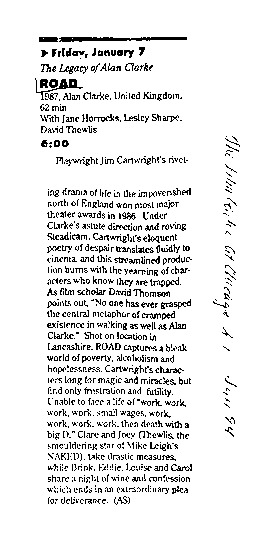 ▶ Friday, January 7
The Legacy of Alan Clarke
ROAD
1987, Alan Clarke, United Kingdom,
62 min
With Jane Horrocks, Lesley Sharpe,
David Thewlis
6:00
Playwright Jim Cartwright's rivet-
ing drama of life in the impoverished
north of England won most major
theater awards in 1986. Under
Clarke's astute direction and roving
Steadicam, Cartwright's eloquent
poetry of despair translates fluidly to
cinema, and this streamlined produc-
tion burns with the yearning of char-
acters who know they are trapped.
As film scholar David Thomson
points out, "No one has ever grasped
the central metaphor of cramped
existence in walking as well as Alan
Clarke." Shot on location in
Lancashire, ROAD captures a bleak
world of poverty, alcoholism and
hopelessness. Cartwright's charac-
ters long for magic and miracles, but
find only frustration and futility.
Unable to face a life of "work, work,
work, work, small wages, work,
work, work, work, then death with a
big D," Clare and Joey (Thewlis, the
smouldering star of Mike Leigh's
NAKED), take drastic measures,
while Brink, Eddie, Louise and Carol
share a night of wine and confession
which ends in an extraordinary plea
for deliverance. (AS)
The Film Center Chicago